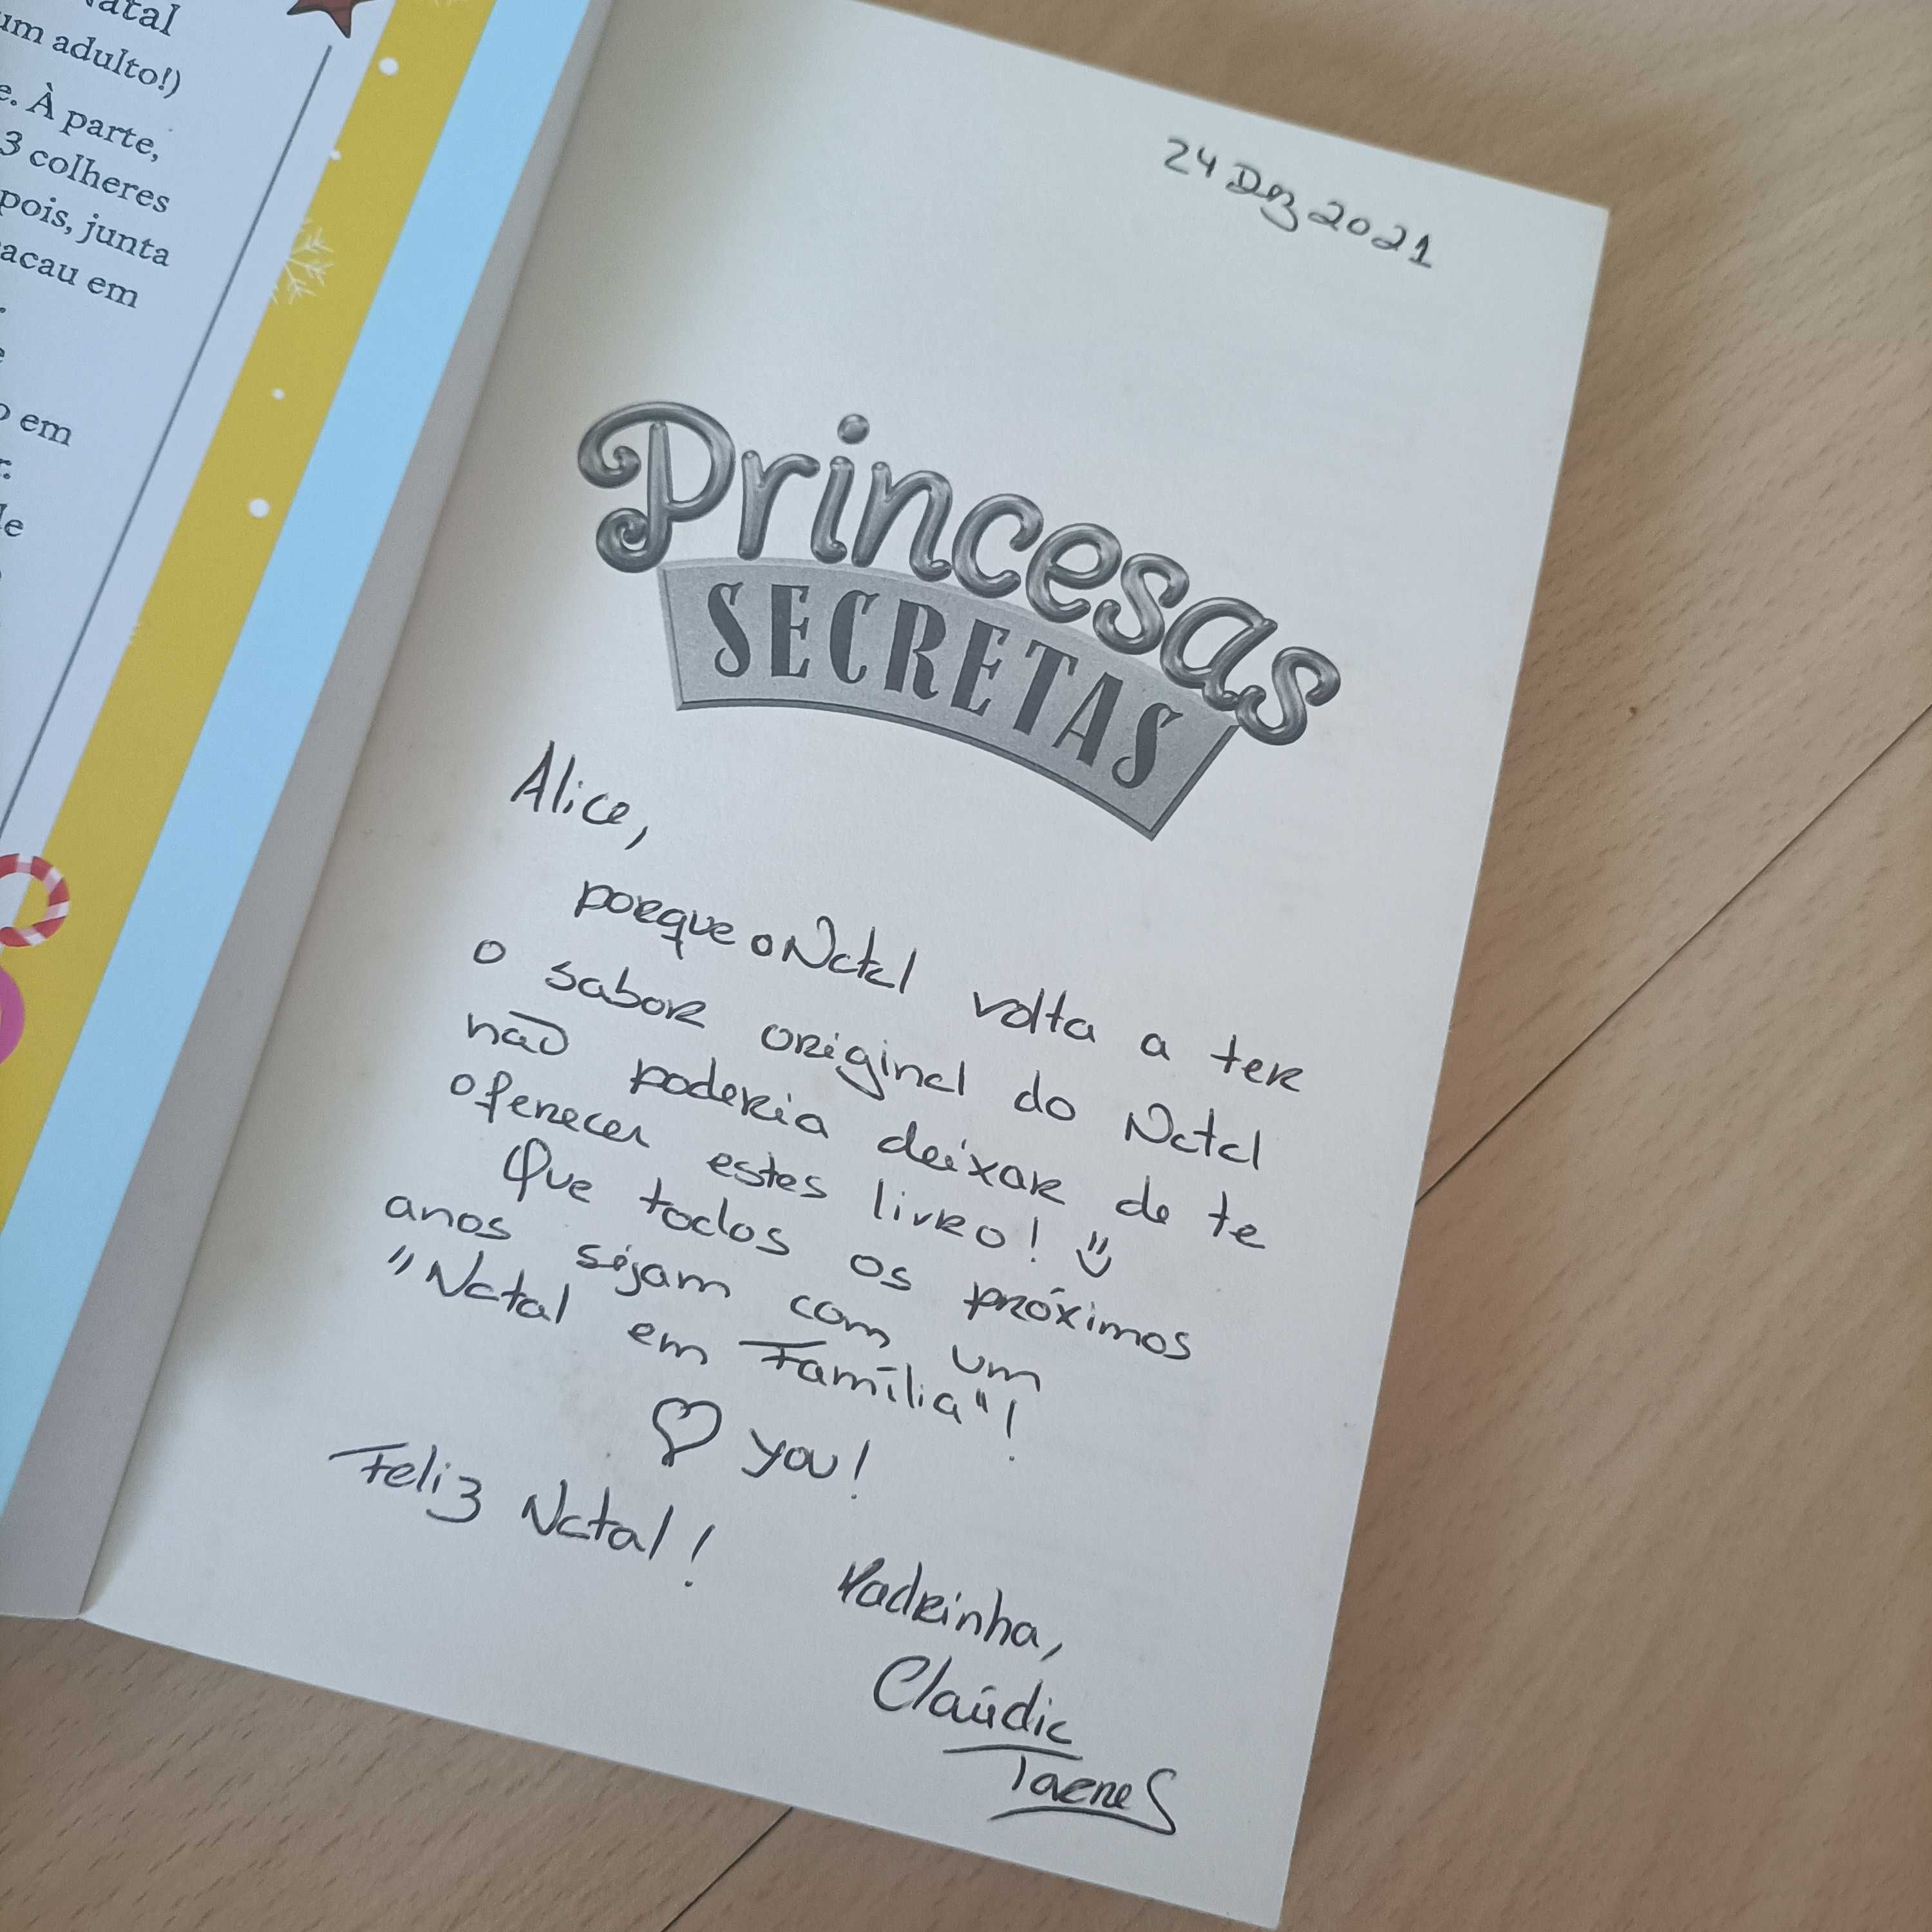 atal
um adulto!)
e. À parte,
3 colheres
pois, junta
acau em
o em
r.
le
24 Dez 2021
Princesas
SECRETAS
Alice,
porque o Natal volta a ter
o sabor original do Natal
não poderia deixar de te
oferecer estes livro!
Que todos os próximos
anos sejam com um
"Natal em Família"!
♡ you!
Feliz Natal!
Madrinha,
Claúdia